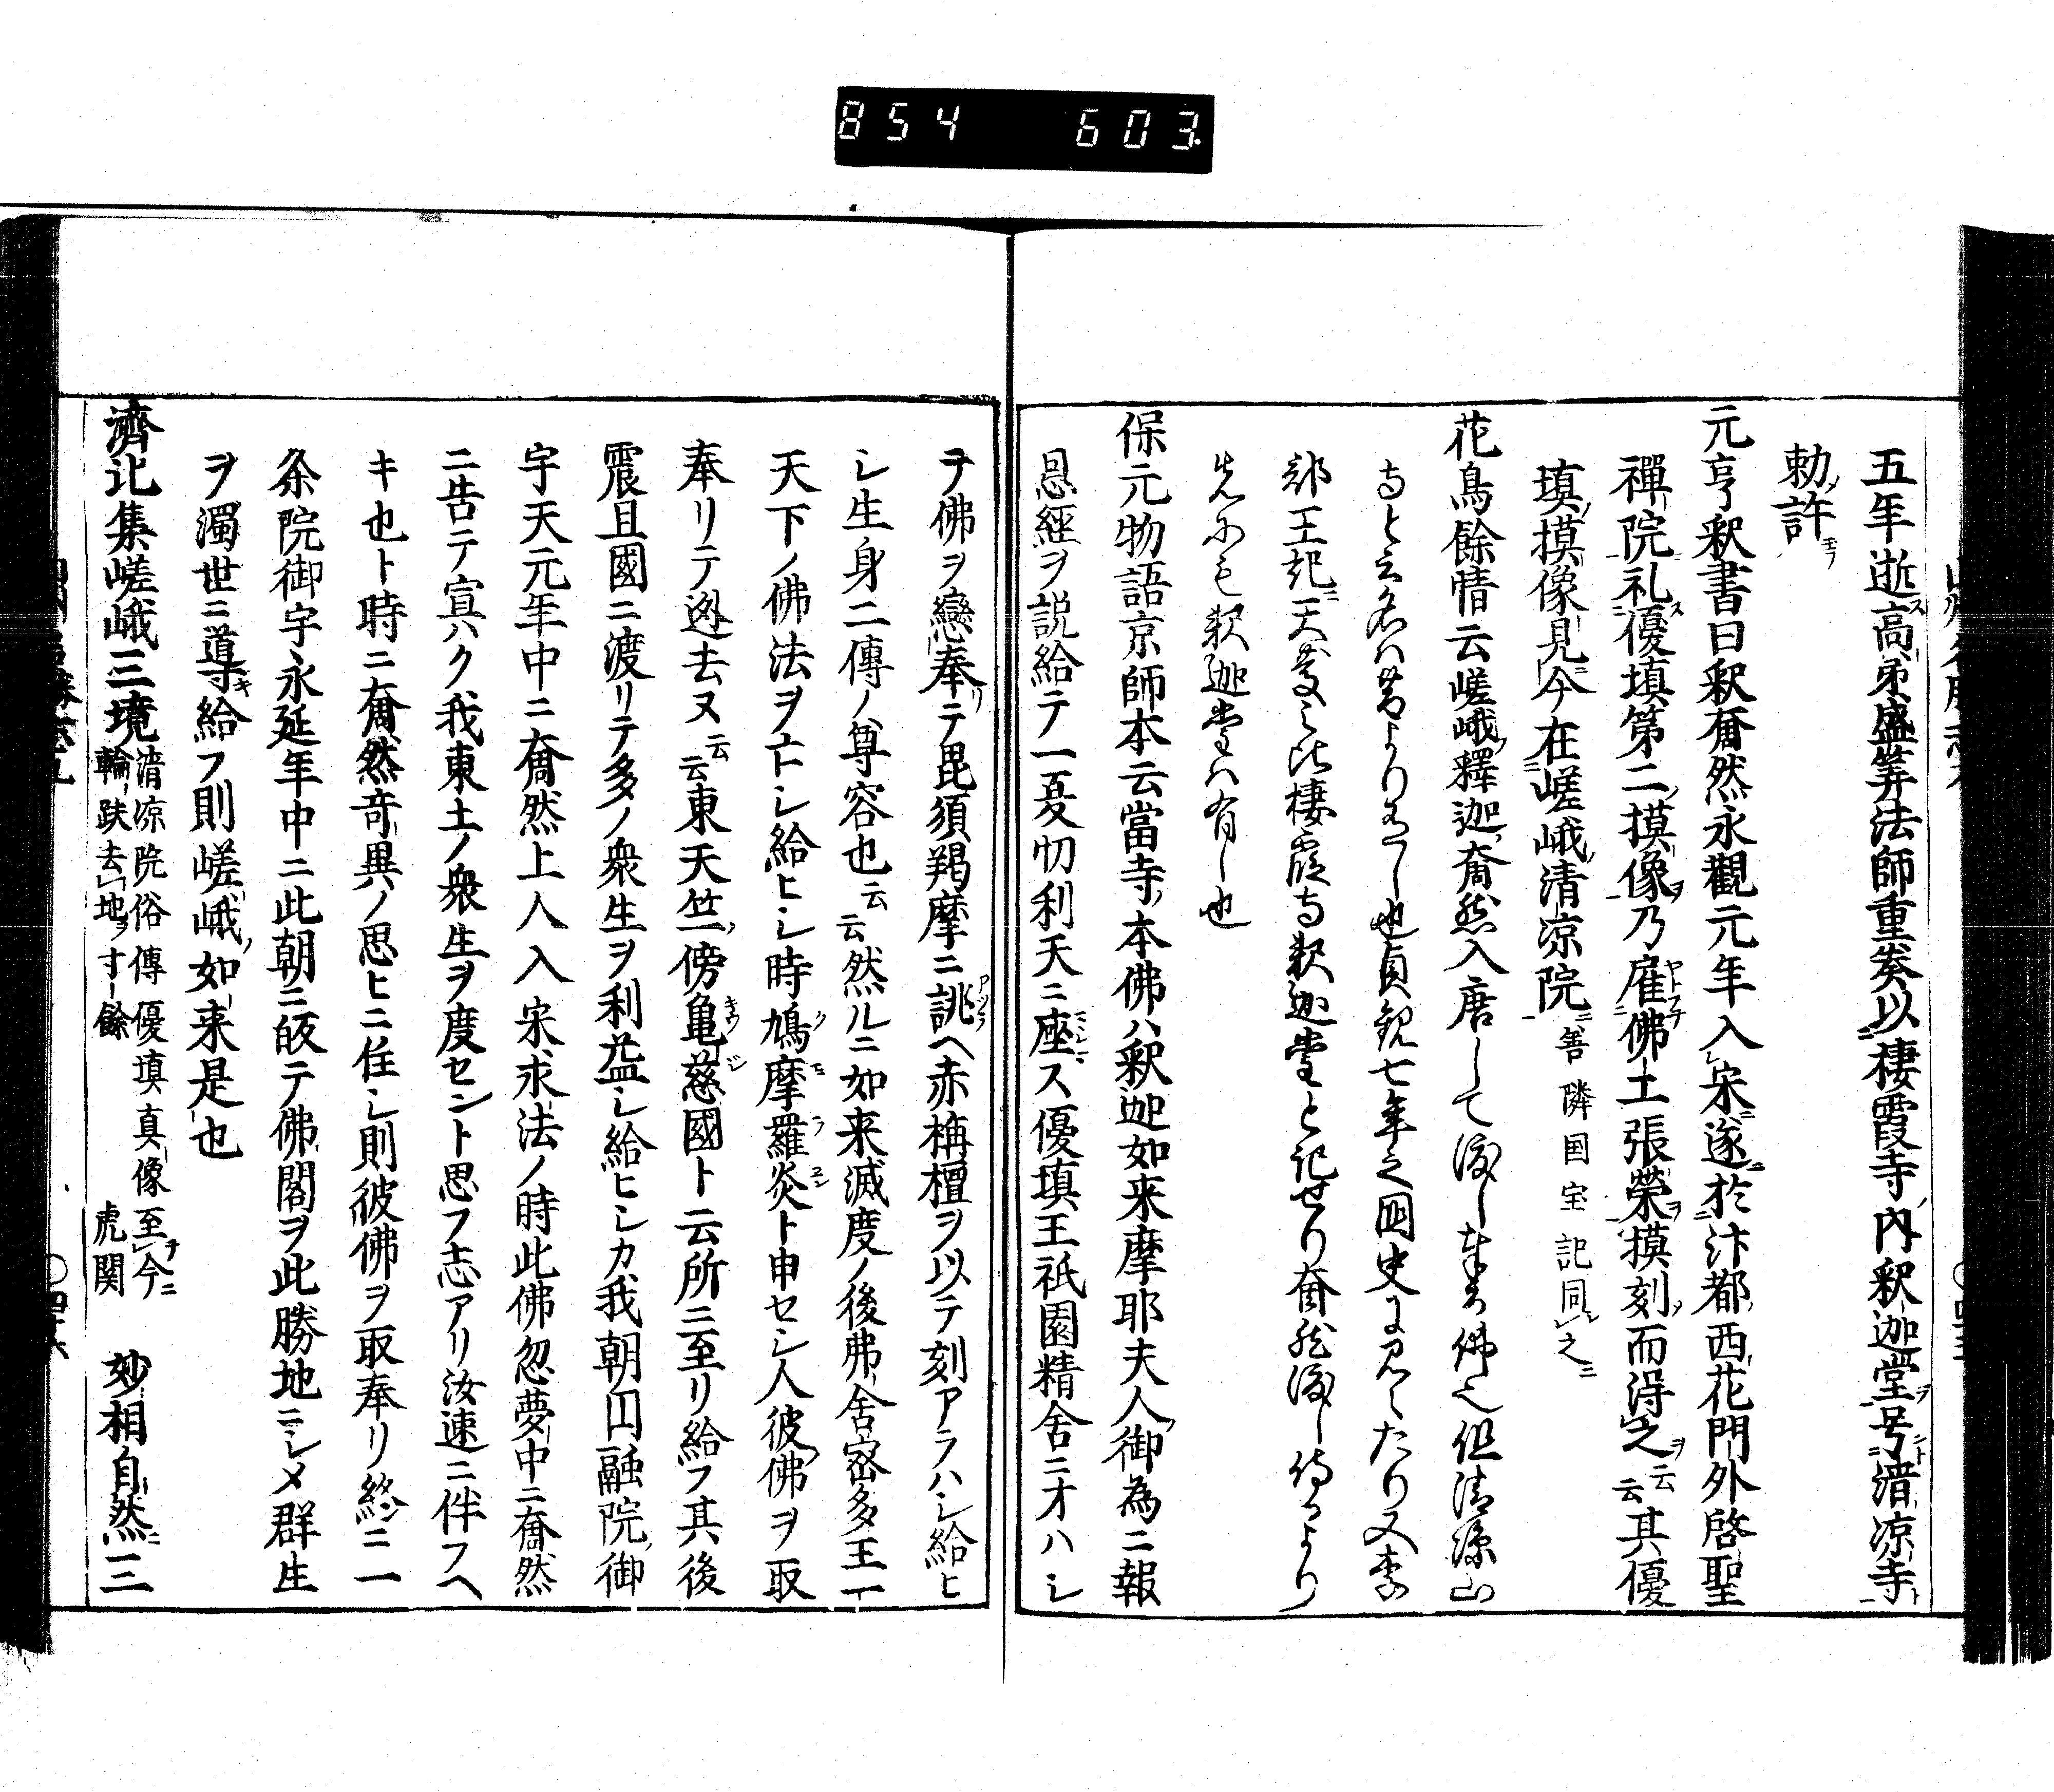 854 603
五年逝高弟盛筭法師重奏以棲霞寺内釈迦堂号清凉寺
勅許
元亨釈書曰釈奝然永觀元年入宋遂於汴都西花門外啓聖
禪院礼優填第二摸像乃雇佛士張榮摸刻而得之云云其優
填摸像見今在嵯峨清凉院善隣国宝記同之
花鳥餘情云嵯峨釋迦奝然入唐して渡し奉る佛也但清凉山
寺と云名は昔よりあり也貞観七年之国史に見えたり又李
部王記天慶之比棲霞寺釈迦堂と記せり奝然渡し侍るより
先にも釈迦堂は有し也
保元物語京師本云當寺本佛ハ釈迦如来摩耶夫人御為ニ報
恩經ヲ説給テ一夏忉利天ニ座ス優填王祇園精舎ニオハシ
テ佛ヲ戀奉テ毘須羯摩ニ誂ヘ赤栴檀ヲ以テ刻アラハシ給ヒ
シ生身二傳ノ尊容也云云然ルニ如来滅度ノ後弗舎密多王一
天下ノ佛法ヲ亡シ給ヒシ時鳩摩羅炎ト申セシ人彼佛ヲ取
奉リテ迯去ヌ云云東天竺傍亀慈國ト云所ニ至リ給フ其後
震旦國ニ渡リテ多ノ衆生ヲ利益シ給ヒシカ我朝円融院御
宇天元年中ニ奝然上人入宋求法ノ時此佛忽夢中ニ奝然
ニ告テ宣ハク我東土ノ衆生ヲ度セント思フ志アリ汝速ニ伴フヘ
キ也ト時ニ奝然奇異ノ思ヒニ住シ則彼佛ヲ取奉リ終ニ一
条院御宇永延年中ニ此朝ニ皈テ佛閣ヲ此勝地ニシメ群生
ヲ濁世ニ導給フ則嵯峨如来是也
濟北集嵯峨三境清凉院俗傳優填真像至今
輪趺去地寸餘 虎関 妙相自然三